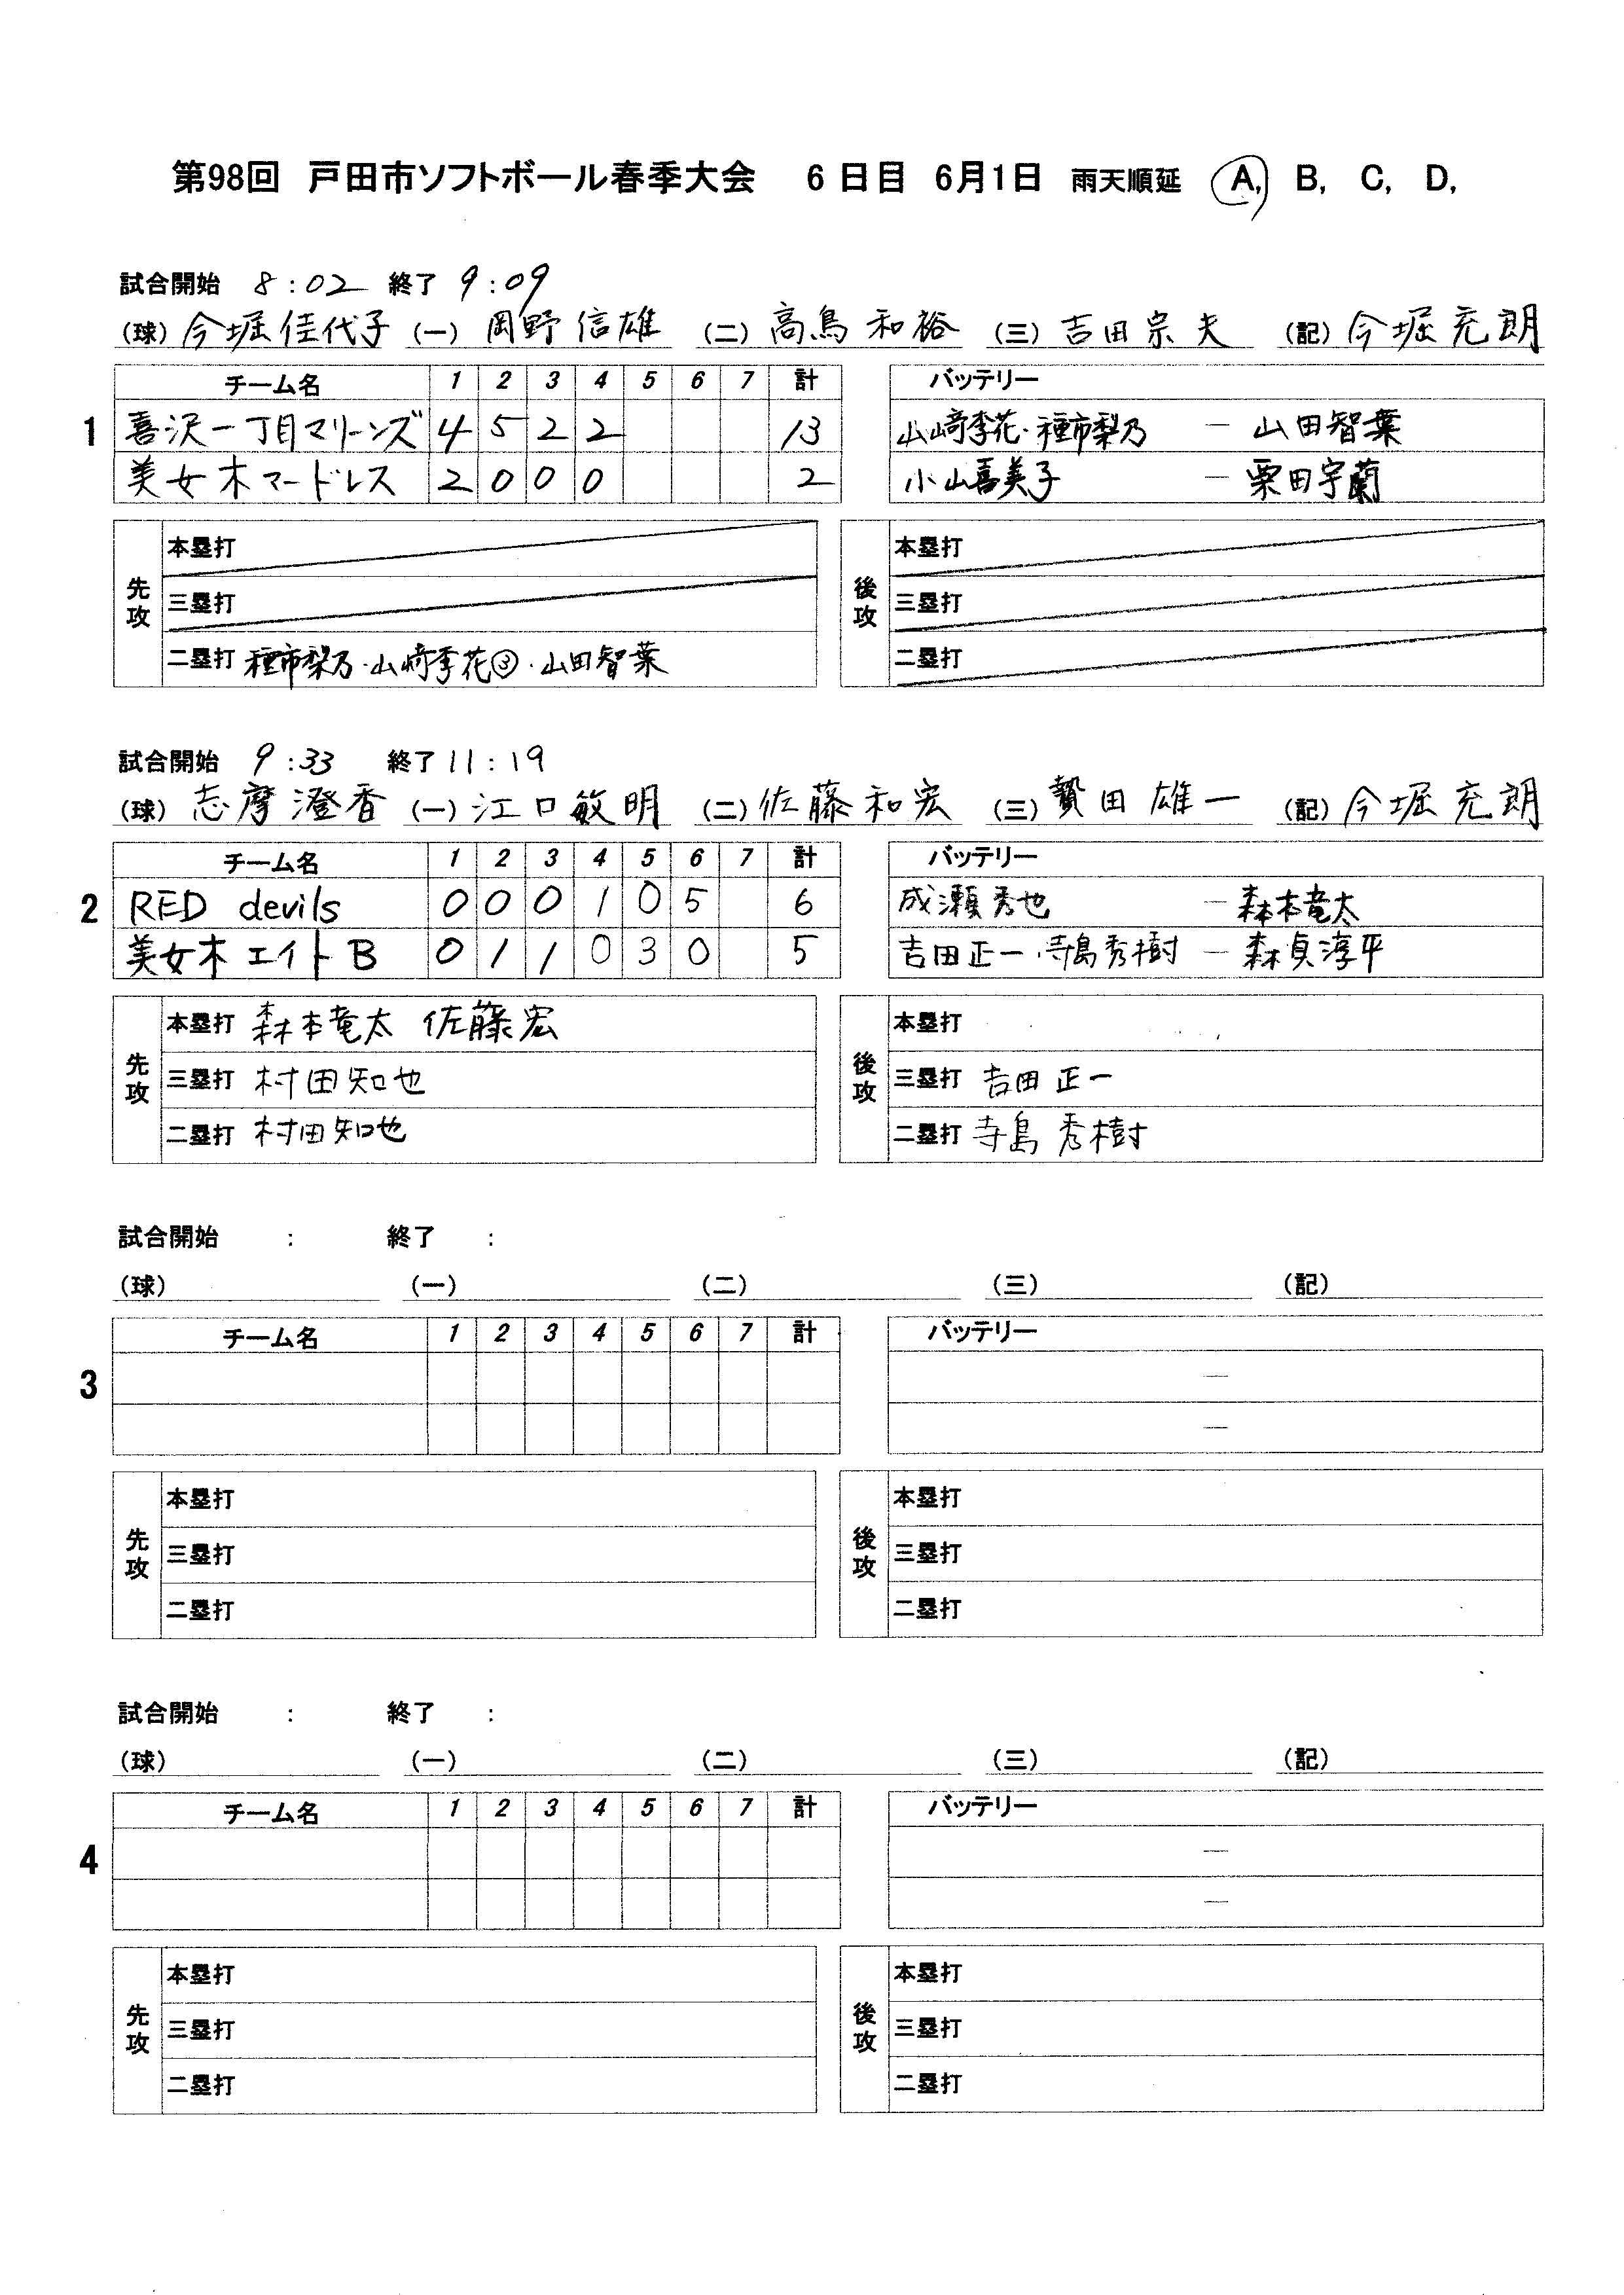 第98回 戸田市ソフトボール春季大会 6 日目 6月1日 雨天順延 A, B, C, D,
試合開始 8:02 終了 9:09
(球) 今堀佳代子 (一) 岡野信雄 (二) 高鳥和裕 (三) 吉田宗夫 (記) 今堀充朗
チーム名 1 2 3 4 5 6 7 計 バッテリー
1 喜沢一丁目マリーンズ 4 5 2 2 13 山﨑李花・種市梨乃 — 山田智葉
美女木マードレス 2 0 0 0 2 小山喜美子 — 栗田宇蘭
先攻 本塁打 後攻 本塁打
三塁打 三塁打
二塁打 種市梨乃・山﨑李花③・山田智葉 二塁打
試合開始 9:33 終了 11:19
(球) 志摩澄香 (一) 江口敏明 (二) 佐藤和宏 (三) 贄田雄一 (記) 今堀充朗
チーム名 1 2 3 4 5 6 7 計 バッテリー
2 RED devils 0 0 0 1 0 5 6 成瀬秀也 — 森本竜太
美女木エイトB 0 1 1 0 3 0 5 吉田正一・寺島秀樹 — 森貞淳平
先攻 本塁打 森本竜太 佐藤宏 後攻 本塁打
三塁打 村田知也 三塁打 吉田正一
二塁打 村田知也 二塁打 寺島秀樹
試合開始 : 終了 :
(球) (一) (二) (三) (記)
チーム名 1 2 3 4 5 6 7 計 バッテリー
3 —
—
先攻 本塁打 後攻 本塁打
三塁打 三塁打
二塁打 二塁打
試合開始 : 終了 :
(球) (一) (二) (三) (記)
チーム名 1 2 3 4 5 6 7 計 バッテリー
4 —
—
先攻 本塁打 後攻 本塁打
三塁打 三塁打
二塁打 二塁打